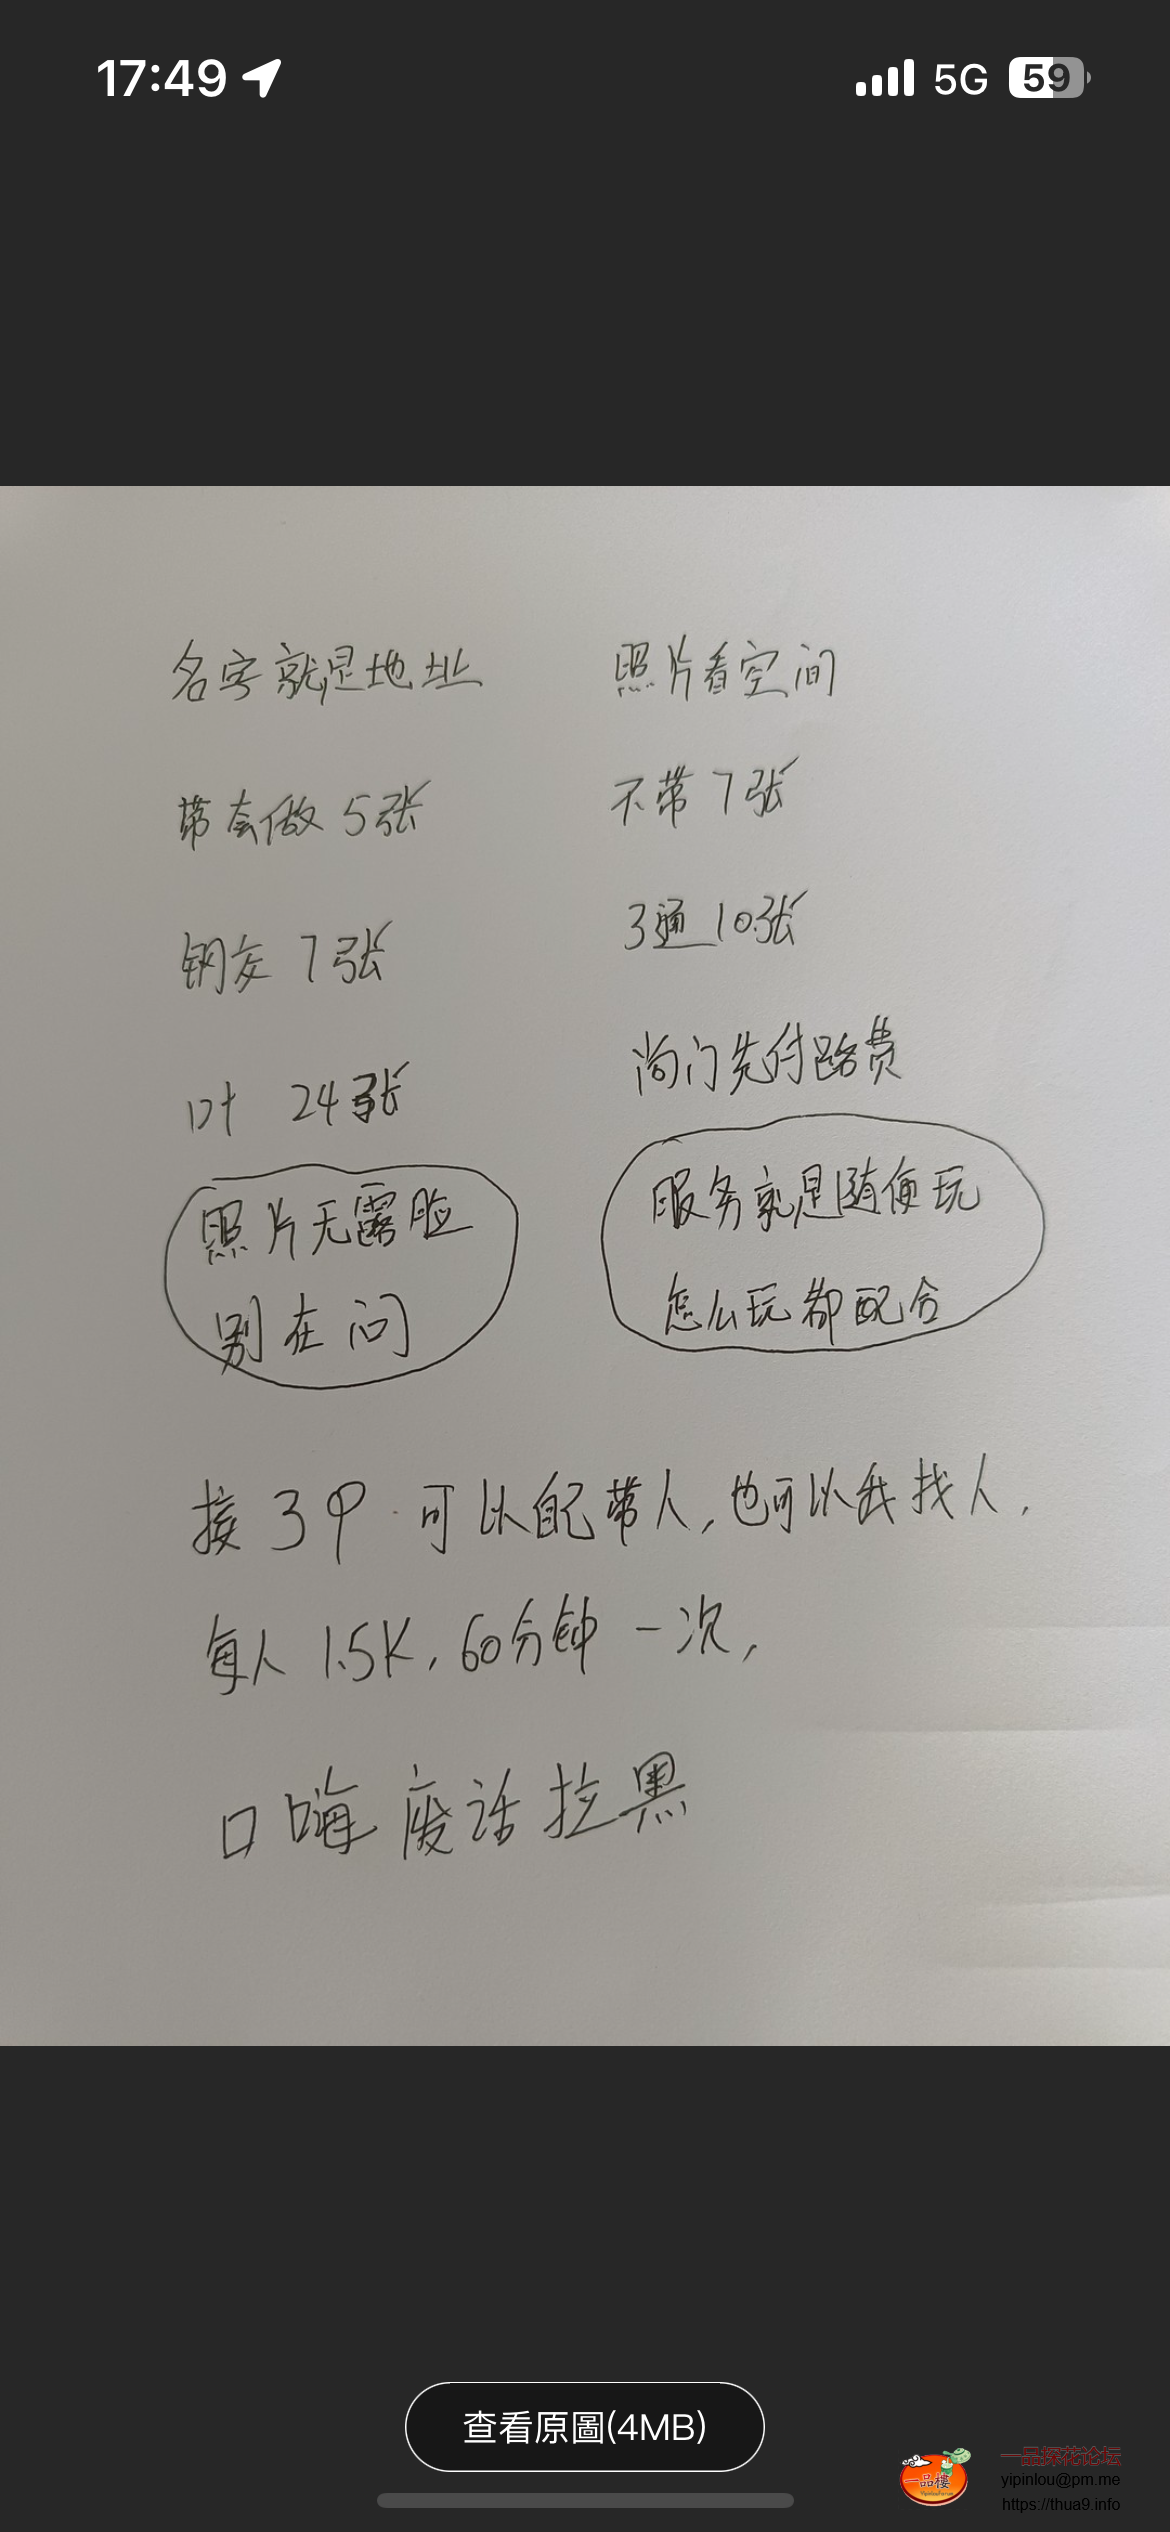 17:49
5G 59
名字就是地址 照片看空间
带套做 5张 不带 7张
钢交 7张 3通 10张
叶 24张 尚门先付路费
照片无露脸 服务就是随便玩
别在问 怎么玩都配合
接 3P 可以自己带人,也可以我找人,
每人 1.5K,60分钟 一次,
口嗨废话拉黑
查看原圖(4MB)
一品樓
一品探花论坛
yipinlou@pm.me
https://thua9.info